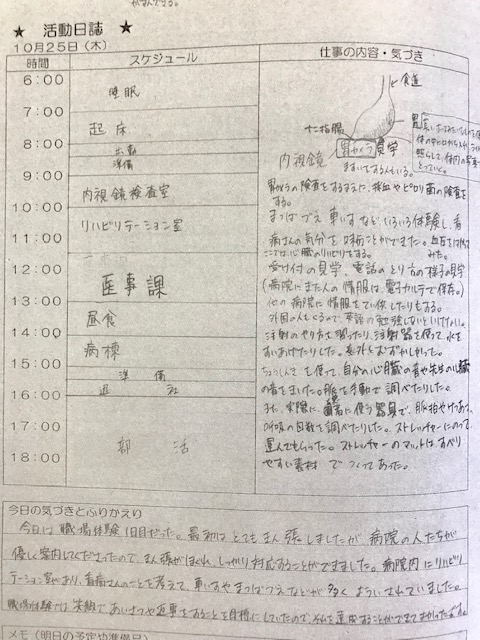 ★ 活動日誌 ★
10月25日(木)
時間 スケジュール 仕事の内容・気づき
6:00
睡眠
7:00
起床
8:00
出勤
準備
9:00
内視鏡検査室
10:00
リハビリテーション室
11:00
12:00
医事課
13:00
昼食
14:00
病棟
15:00
準備
退社
16:00
17:00
部活
18:00
食道
十二指腸
内視鏡 胃カメラ 見学
ますいをする人もいる。
胃カメラの検査をするまえに、採血やピロリ菌の検査を
する。
まつばづえ、車いすなどいろいろ体験し、看
病さんの気分を味わうことができました。血圧をはかって
みた。
ここでは心臓のリハビリをする。
受け付の見学、電話のとり方の様子の見学
(病院にきた人の情報は電子カルテで保存。)
他の病院に情報をていきょうしたりもする。
外国の人もくるので、英語の勉強しないといけない。
注射のやり方を習ったり、注射器を使って水を
すいあげたりした。意外とむずかしかった。
ちょうしんきを使って、自分の心臓の音や先生の心臓
の音をきいた。脈を手動で調べたりした。
また、実際に、患者に使う器具で、脈拍や
呼吸の回数を調べたりした。ストレッチャーにのって、
運んでもらった。ストレッチャーのマットは、すべり
やすい素材でつくってあった。
今日の気づきとふりかえり
今日は職場体験1日目だった。最初はとてもきん張しましたが、病院の人たちが
優しく案内してくださったので、きん張がほぐれ、しっかり対応することができました。病院内にリハビリ
テーション室があり、看病さんのことを考えて、車いすやまつばづえなどが多くよういされていました。
職場体験では笑顔であいさつや返事をすることを目標にしていたので、それを達成することができてよかったです。
メモ(明日の予定や準備日)